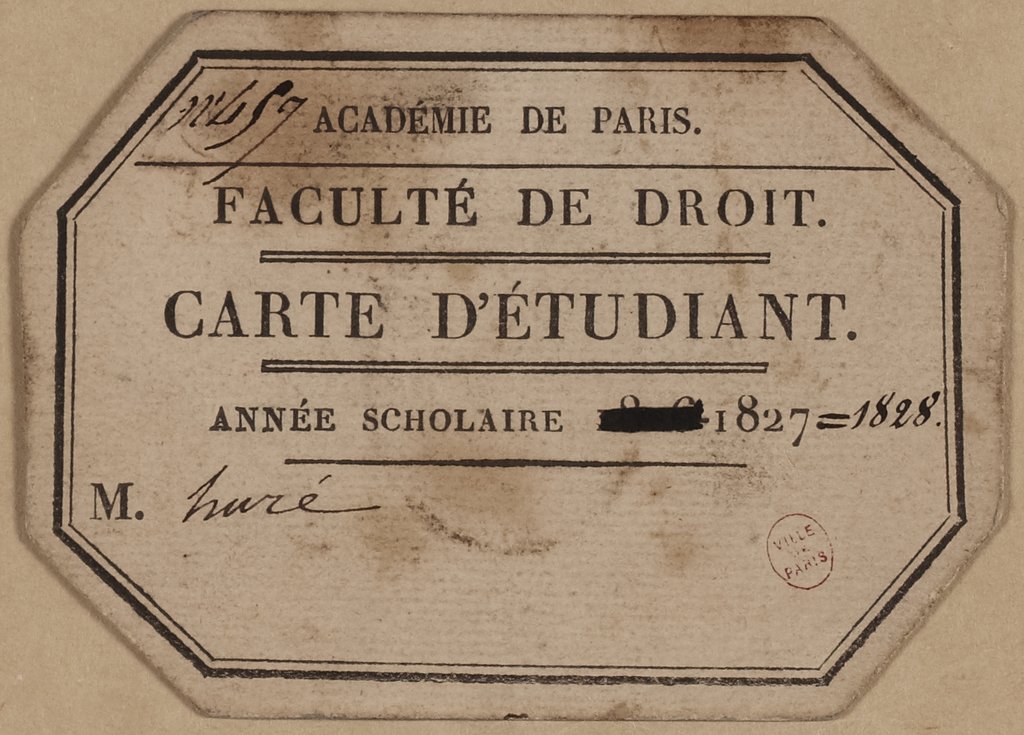 n° 457
ACADÉMIE DE PARIS.
FACULTÉ DE DROIT.
CARTE D'ÉTUDIANT.
ANNÉE SCHOLAIRE 1827=1828.
M. huré
VILLE
DE
PARIS